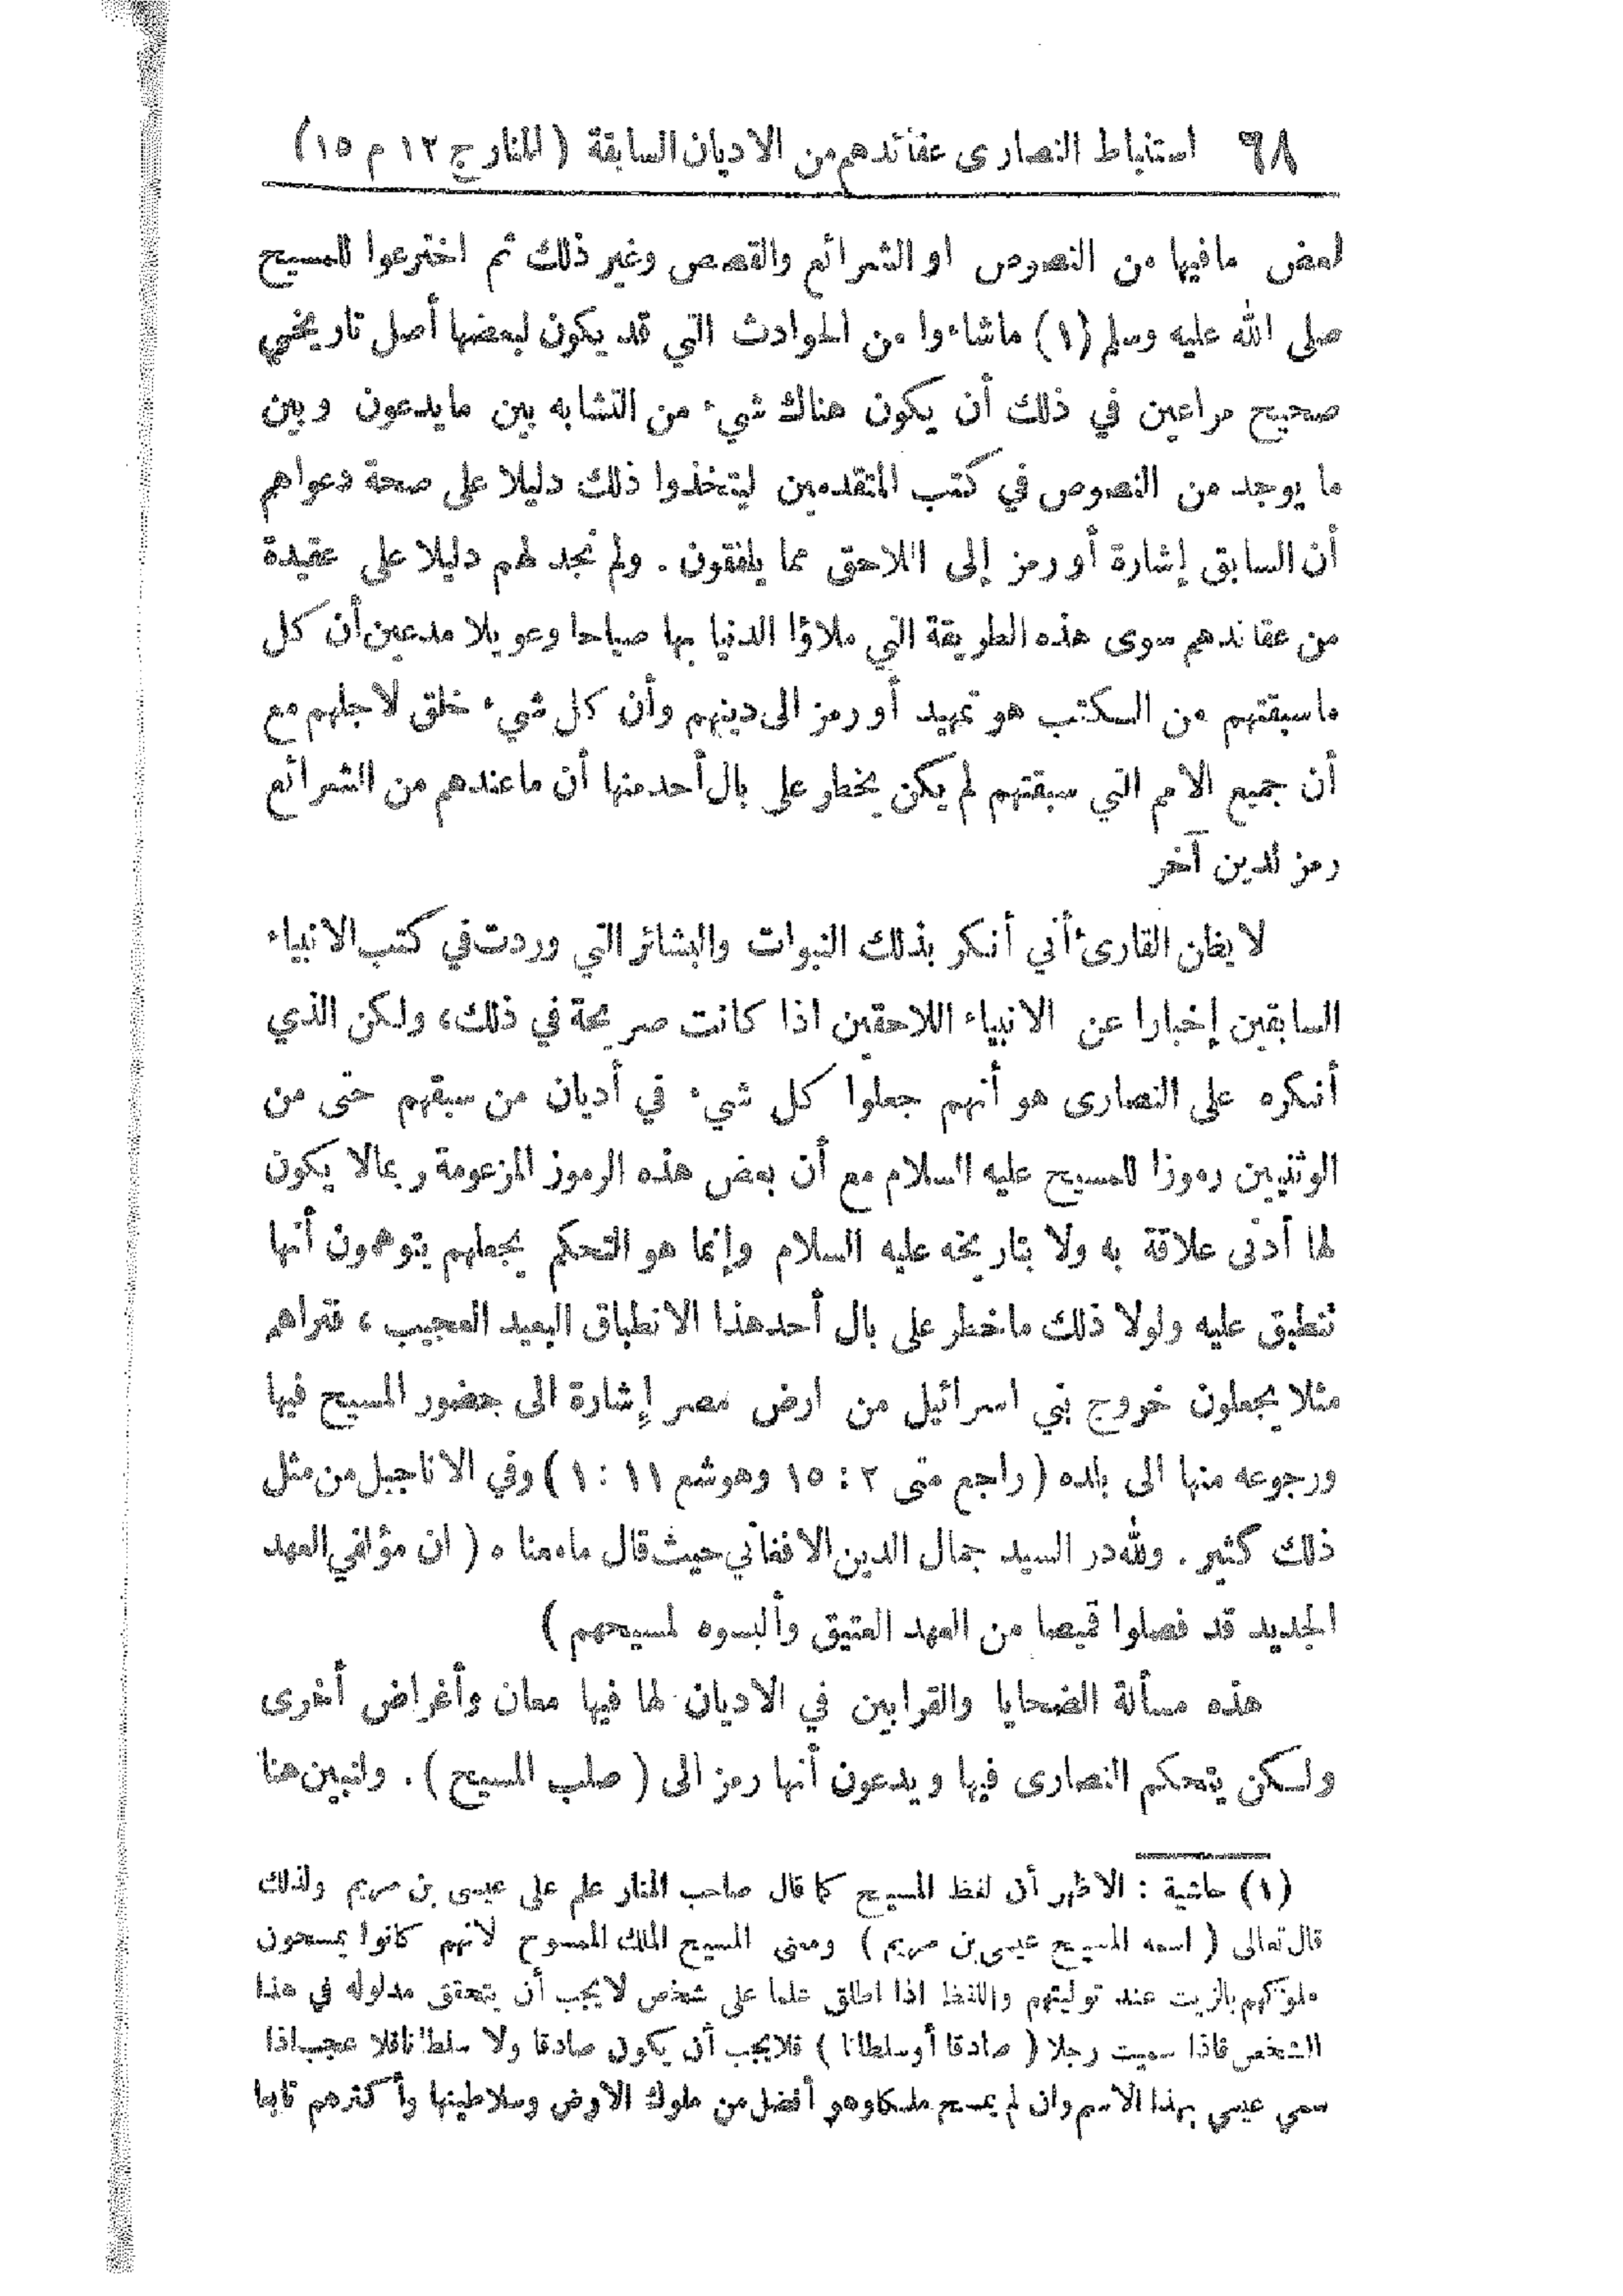 ٩٨ استنباط النصارى عقائدهم من الاديان السابقة ( المنار ج ١٢ م ١٥ )
لبعض مافيها من النصوص او الشرائع والقصص وغير ذلك ثم اخترعوا للمسيح
صلى الله عليه وسلم (١) ماشاءوا من الحوادث التي قد يكون لبعضها أصل تاريخي
صحيح مراعين في ذلك أن يكون هناك شيء من التشابه بين مايدعون وبين
ما يوجد من النصوص في كتب المتقدمين ليتخذوا ذلك دليلا على صحة دعواهم
أن السابق إشارة أو رمز إلى اللاحق مما يلفقون . ولم نجد لهم دليلا على عقيدة
من عقائدهم سوى هذه الطريقة التي ملاؤا الدنيا بها صياحا وعويلا مدعين أن كل
ماسبقتهم من الكتب هو تمهيد أو رمز الى دينهم وأن كل شيء خلق لاجلهم مع
أن جميع الامم التي سبقتهم لم يكن يخطر على بال أحد منها أن ماعندهم من الشرائع
رمز لدين آخر
لا يظن القارئ أني أنكر بذلك النبوات والبشائر التي وردت في كتب الانبياء
السابقين إخبارا عن الانبياء اللاحقين اذا كانت صريحة في ذلك، ولكن الذي
أنكره على النصارى هو أنهم جعلوا كل شيء في أديان من سبقهم حتى من
الوثنيين رموزا للمسيح عليه السلام مع أن بعض هذه الرموز المزعومة ربمالا يكون
لها أدنى علاقة به ولا بتاريخه عليه السلام وإنما هو التحكم يجعلهم يتوهمون أنها
تنطبق عليه ولولا ذلك ماخطر على بال أحد هذا الانطباق البعيد العجيب ، فتراهم
مثلا يجعلون خروج بني اسرائيل من ارض مصر إشارة الى حضور المسيح فيها
ورجوعه منها الى بلده ( راجع متى ٢ : ١٥ وهوشع ١١ : ١ ) وفي الاناجيل من مثل
ذلك كثير . ولله در السيد جمال الدين الافغاني حيث قال مامعناه ( ان مؤلفي العهد
الجديد قد فصلوا قميصا من العهد العتيق وألبسوه لمسيحهم )
هذه مسألة الضحايا والقرابين في الاديان لها فيها معان وأغراض أخرى
ولكن يتحكم النصارى فيها ويدعون أنها رمز الى ( صلب المسيح ) . ولنبين هنا
(١) حاشية : الاظهر أن لفظ المسيح كما قال صاحب المنار علم على عيسى بن مريم ولذلك
قال تعالى ( اسمه المسيح عيسى بن مريم ) ومعنى المسيح الملك الممسوح لانهم كانوا يمسحون
ملوكهم بالزيت عند توليتهم واللفظ اذا اطلق علما على شخص لايجب أن يتحقق مدلوله في هذا
الشخص فاذا سميت رجلا ( صادقا أوسلطانا ) فلايجب أن يكون صادقا ولا سلطانا فلا عجب اذا
سمي عيسى بهذا الاسم وان لم يمسح ملكا وهو أفضل من ملوك الارض وسلاطينها وأكثرهم تابعا